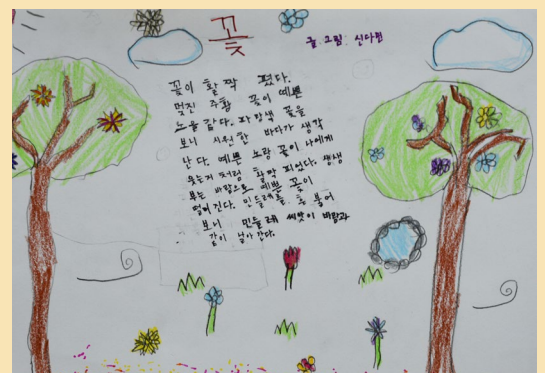 꽃
글 그림 신다인
꽃이 활짝 폈다.
멋진 주황 꽃이 예쁜
노을 같다. 파랑색 꽃을
보니 시원한 바다가 생각
난다. 예쁜 노랑 꽃이 나에게
웃는거 처럼 활짝 피었다. 쌩쌩
부는 바람으로 예쁜 꽃이
떨어진다. 민들레를 후 불어
보니 민들레 씨앗이 바람과
같이 날아 간다.